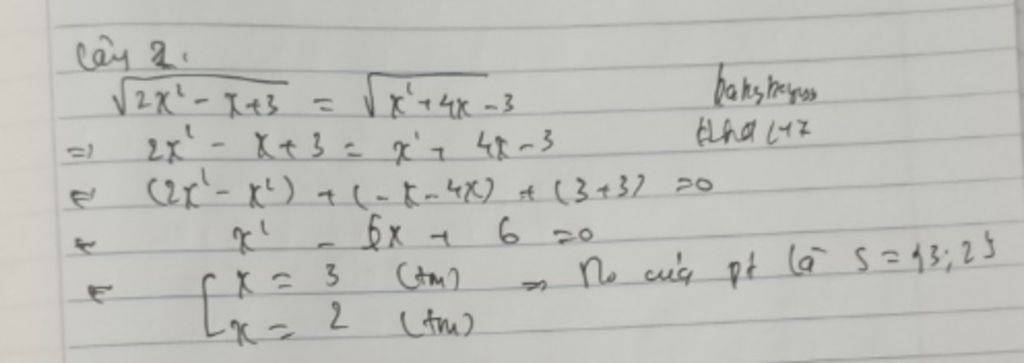 Câu 2.
√(2x² - x + 3) = √(x² + 4x - 3)
=> 2x² - x + 3 = x² + 4x - 3
<=> (2x² - x²) + (-x - 4x) + (3 + 3) = 0
<=> x² - 5x + 6 = 0
<=> [ x = 3 (tm) => No của pt là S = {3; 2}
x = 2 (tm)